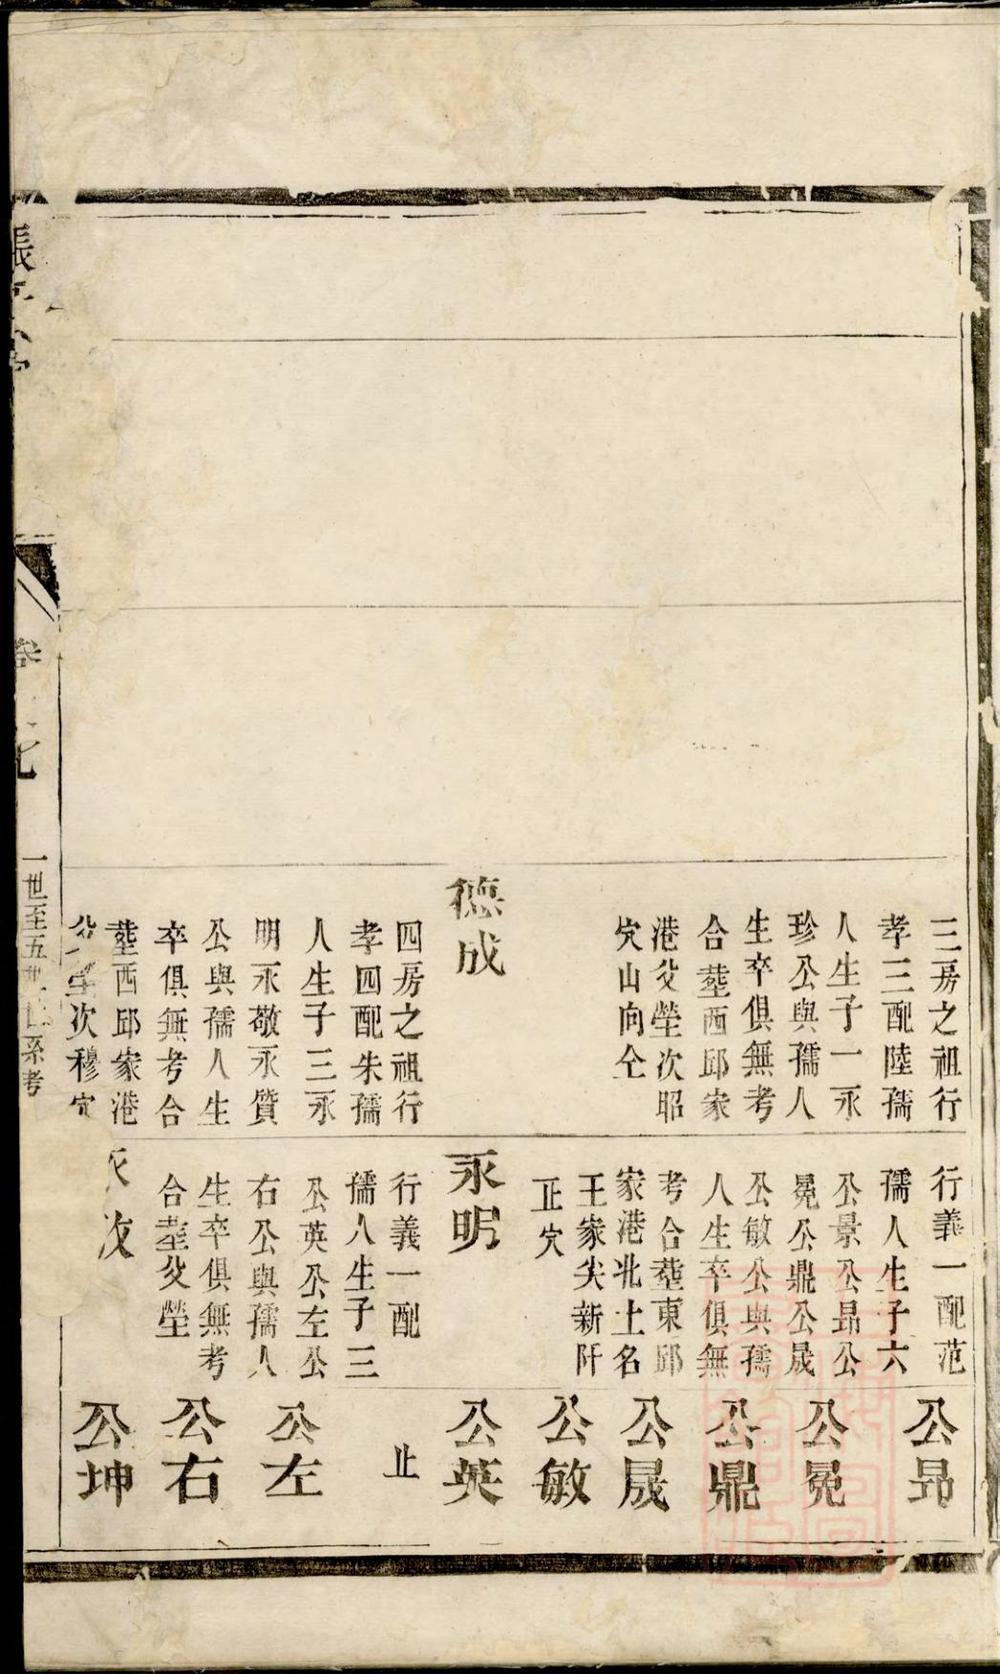 三房之祖行
孝三配陸孺
人生子一永
珍公與孺人
生卒俱無考
合塟西邱家
港父塋次昭
穴山向仝
德成
四房之祖行
孝四配朱孺
人生子三永
明永敬永贊
公與孺人生
卒俱無考合
塟西邱家港
次穆穴
行義一配范
孺人生子六
公景公昻公
冕公鼎公晟
公敏公與孺
人生卒俱無
考合塟東邱
家港北土名
王家尖新阡
正穴
永明
行義一配
孺人生子三
公英公左公
右公與孺人
生卒俱無考
合塟父塋
公昻
公冕
公鼎
公晟
公敏
公英
止
公左
公右
公坤
卷
一世至五世
系考